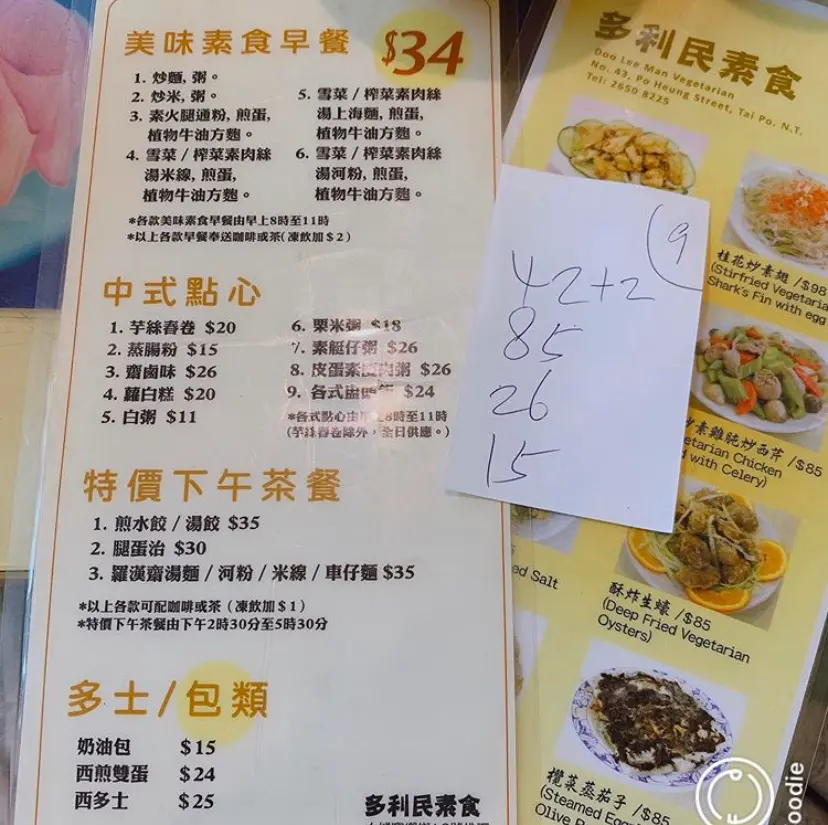 美味素食早餐 $34
1. 炒麵, 粥。
2. 炒米, 粥。
3. 素火腿通粉, 煎蛋,
植物牛油方麵。
4. 雪菜 / 榨菜素肉絲
湯米線, 煎蛋,
植物牛油方麵。
5. 雪菜 / 榨菜素肉絲
湯上海麵, 煎蛋,
植物牛油方麵。
6. 雪菜 / 榨菜素肉絲
湯河粉, 煎蛋,
植物牛油方麵。
*各款美味素食早餐由早上8時至11時
*以上各款早餐奉送咖啡或茶(凍飲加$2)
中式點心
1. 芋絲春卷 $20
2. 蒸腸粉 $15
3. 齋鹵味 $26
4. 蘿白糕 $20
5. 白粥 $11
6. 粟米粥 $18
7. 素艇仔粥 $26
8. 皮蛋素 肉粥 $26
9. 各式 $24
*各式點心由 8時至11時
(芋絲春卷除外,全日供應。)
特價下午茶餐
1. 煎水餃 / 湯餃 $35
2. 腿蛋治 $30
3. 羅漢齋湯麵 / 河粉 / 米線 / 車仔麵 $35
*以上各款可配咖啡或茶 (凍飲加$1)
*特價下午茶餐由下午2時30分至5時30分
多士/包類
奶油包 $15
西煎雙蛋 $24
西多士 $25
多利民素食
9
42+2
85
26
15
多利民素食
Doo Lee Man Vegetarian
No. 43, Po Heung Street, Tai Po. N.T.
Tel: 2650 8225
桂花炒素翅 /$98
(Stirfried Vegetaria
Shark's Fin with egg
素雞腎炒西芹 /$85
etarian Chicken
d with Celery)
ed Salt
酥炸生蠔 /$85
(Deep Fried Vegetarian
Oysters)
欖菜蒸茄子 /$85
(Steamed Egg
Olive
oodie